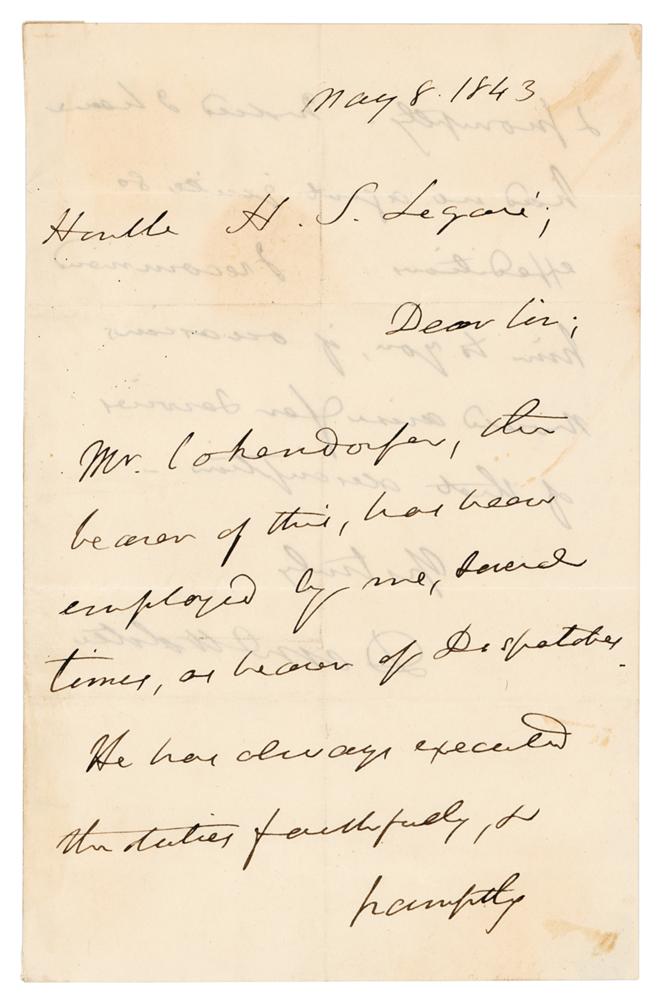 May 8. 1843
Honble H. S. Legaré;
Dear Sir;
Mr. Cokendorfer, the
bearer of this, has been
employed by me, several
times, as bearer of Dispatches.
He has always executed
the duties faithfully, &
promptly